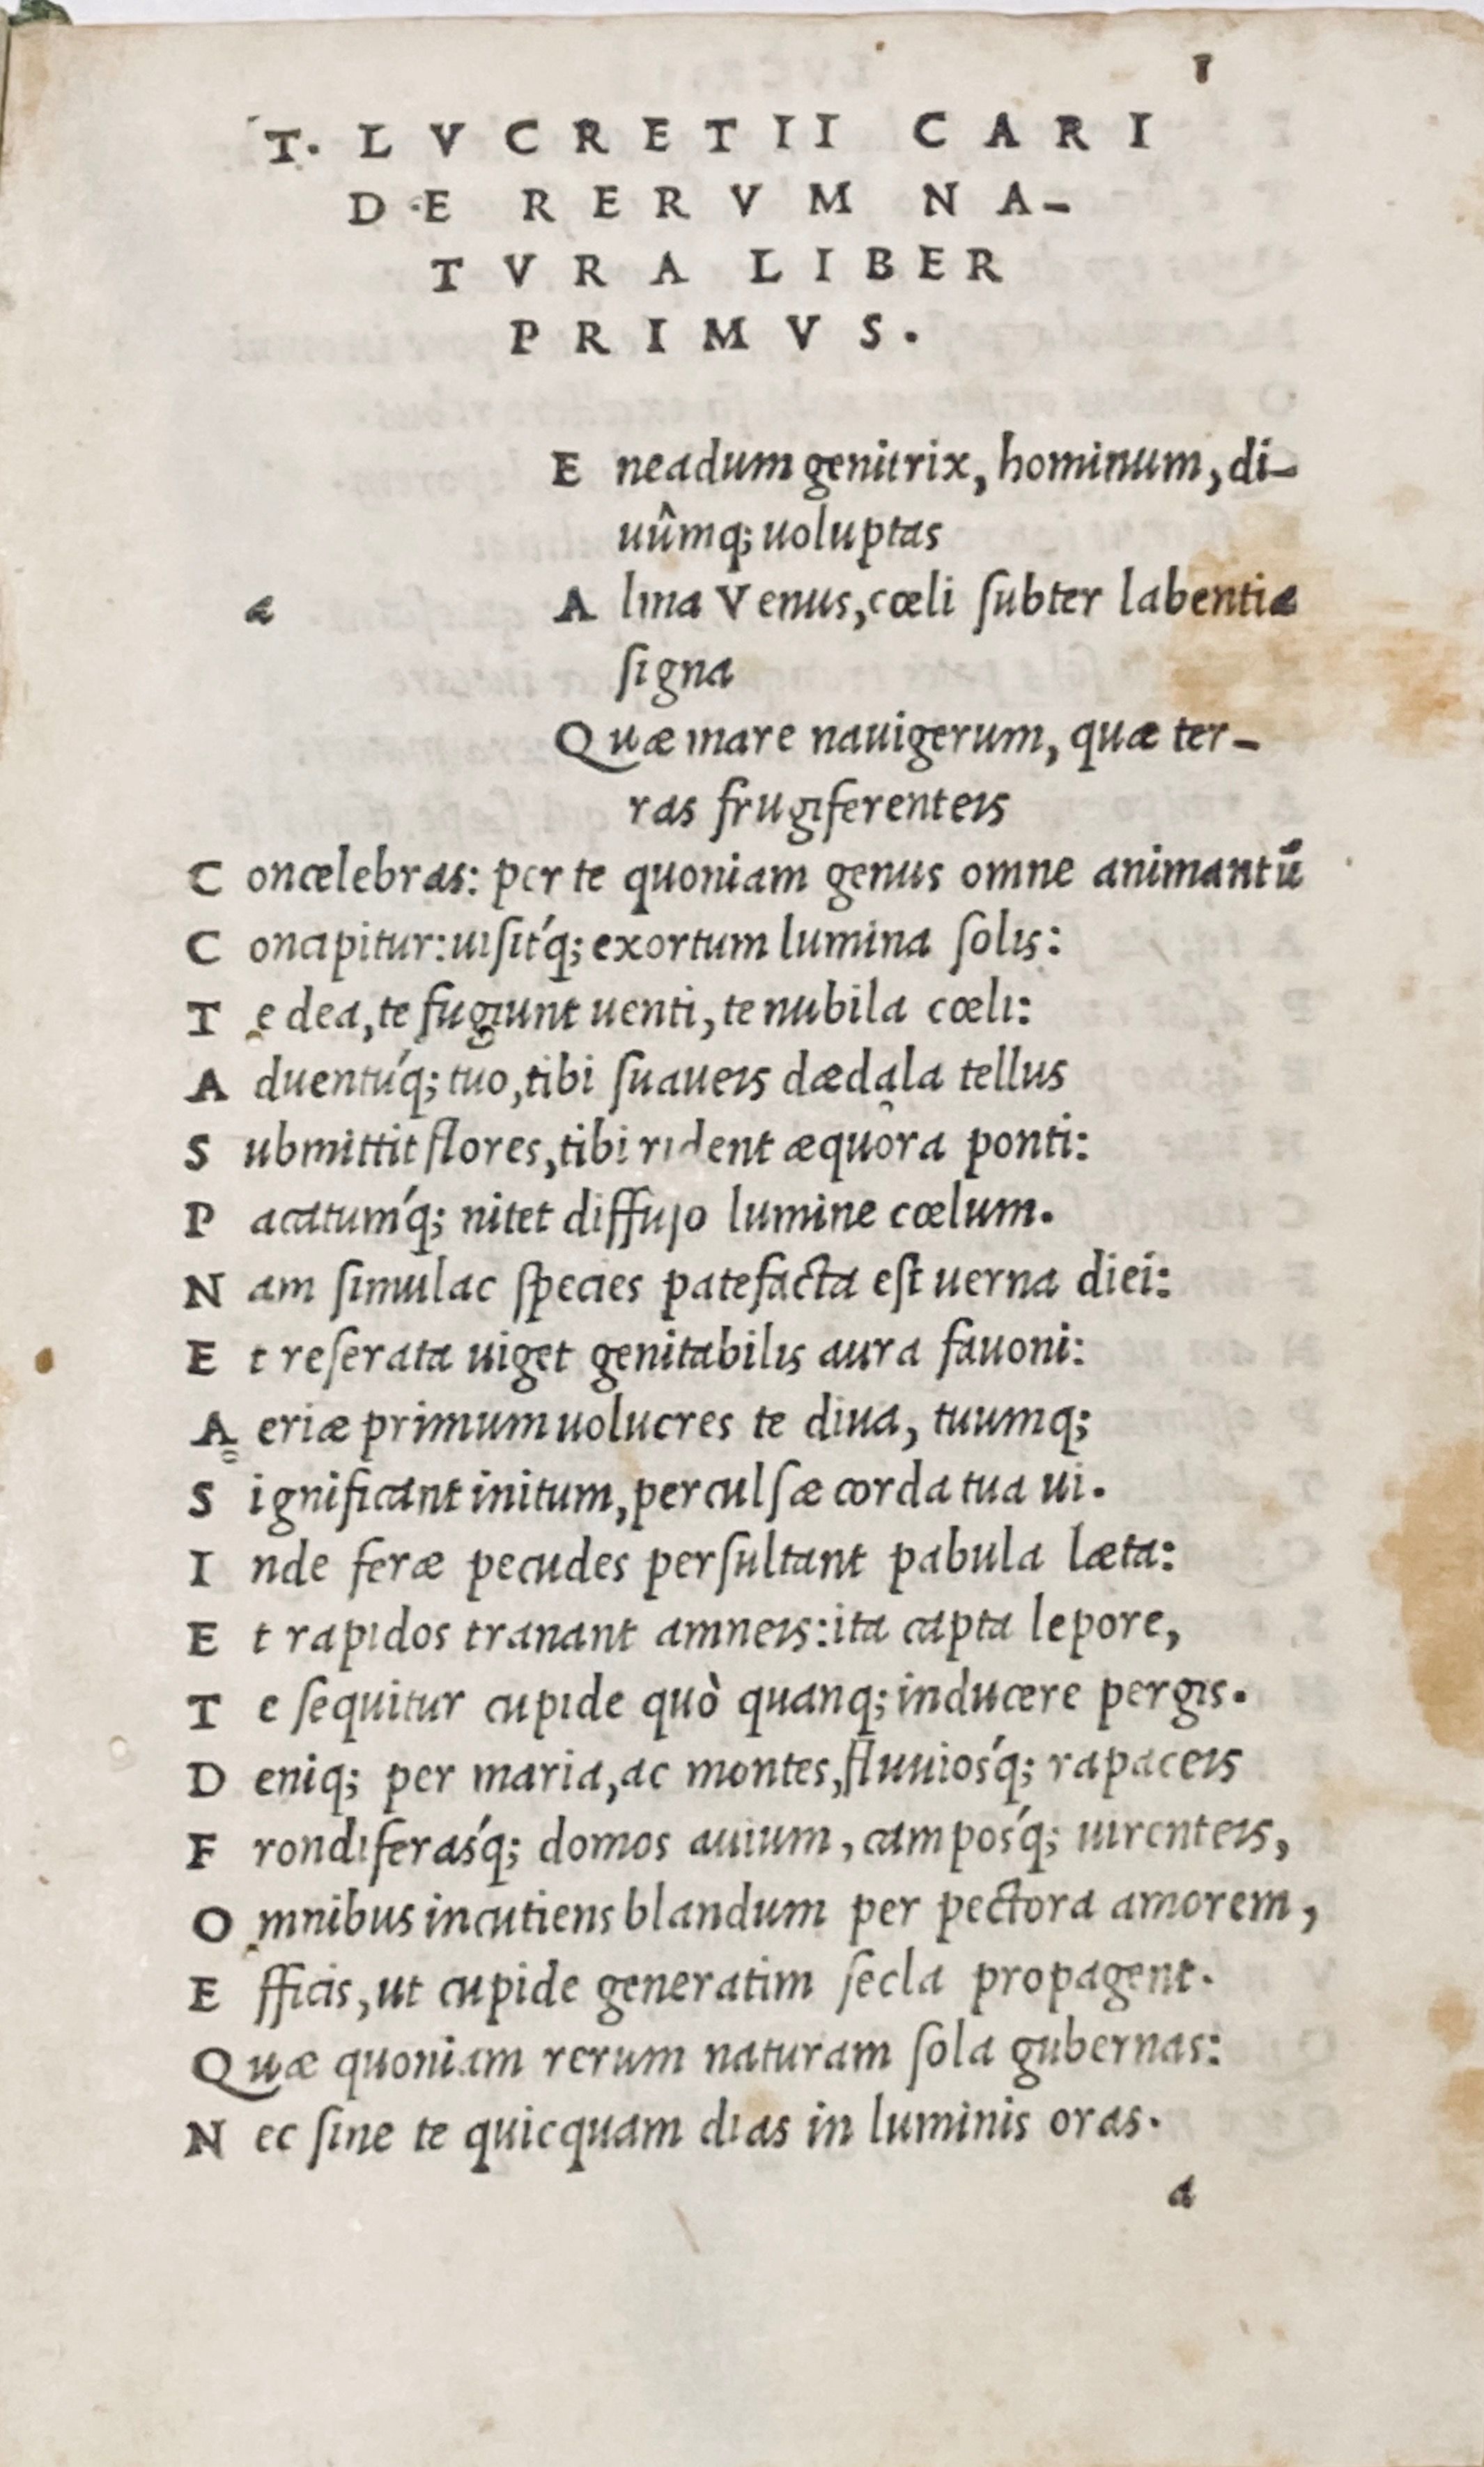 1
T. LVCRETII CARI
DE RERVM NA-
TVRA LIBER
PRIMVS.
E neadum genitrix, hominum, di-
uûmq; uoluptas
a
A lma Venus, cœli ſubter labentia
ſigna
Quæ mare nauigerum, quæ ter-
ras frugiferenteis
C oncelebras: per te quoniam genus omne animantũ
C oncipitur: uiſit́q; exortum lumina ſolis:
T e dea, te fugiunt uenti, te nubila cœli:
A duentúq; tuo, tibi ſuaueis dædala tellus
S ubmittit flores, tibi rident æquora ponti:
P acatuḿq; nitet diffuſo lumine cœlum.
N am ſimulac ſpecies patefacta eſt uerna diei:
E t reſerata uiget genitabilis aura fauoni:
A eriæ primum uolucres te diua, tuumq;
S ignificant initum, perculſæ corda tua ui.
I nde feræ pecudes perſultant pabula læta:
E t rapidos tranant amneis: ita capta lepore,
T e ſequitur cupide quò quanq; inducere pergis.
D eniq; per maria, ac montes, fluuioś q; rapaceis
F rondiferaś q; domos auium, campoś q; uirenteis,
O mnibus incutiens blandum per pectora amorem,
E fficis, ut cupide generatim ſecla propagent.
Quæ quoniam rerum naturam ſola gubernas:
N ec ſine te quicquam dias in luminis oras.
a